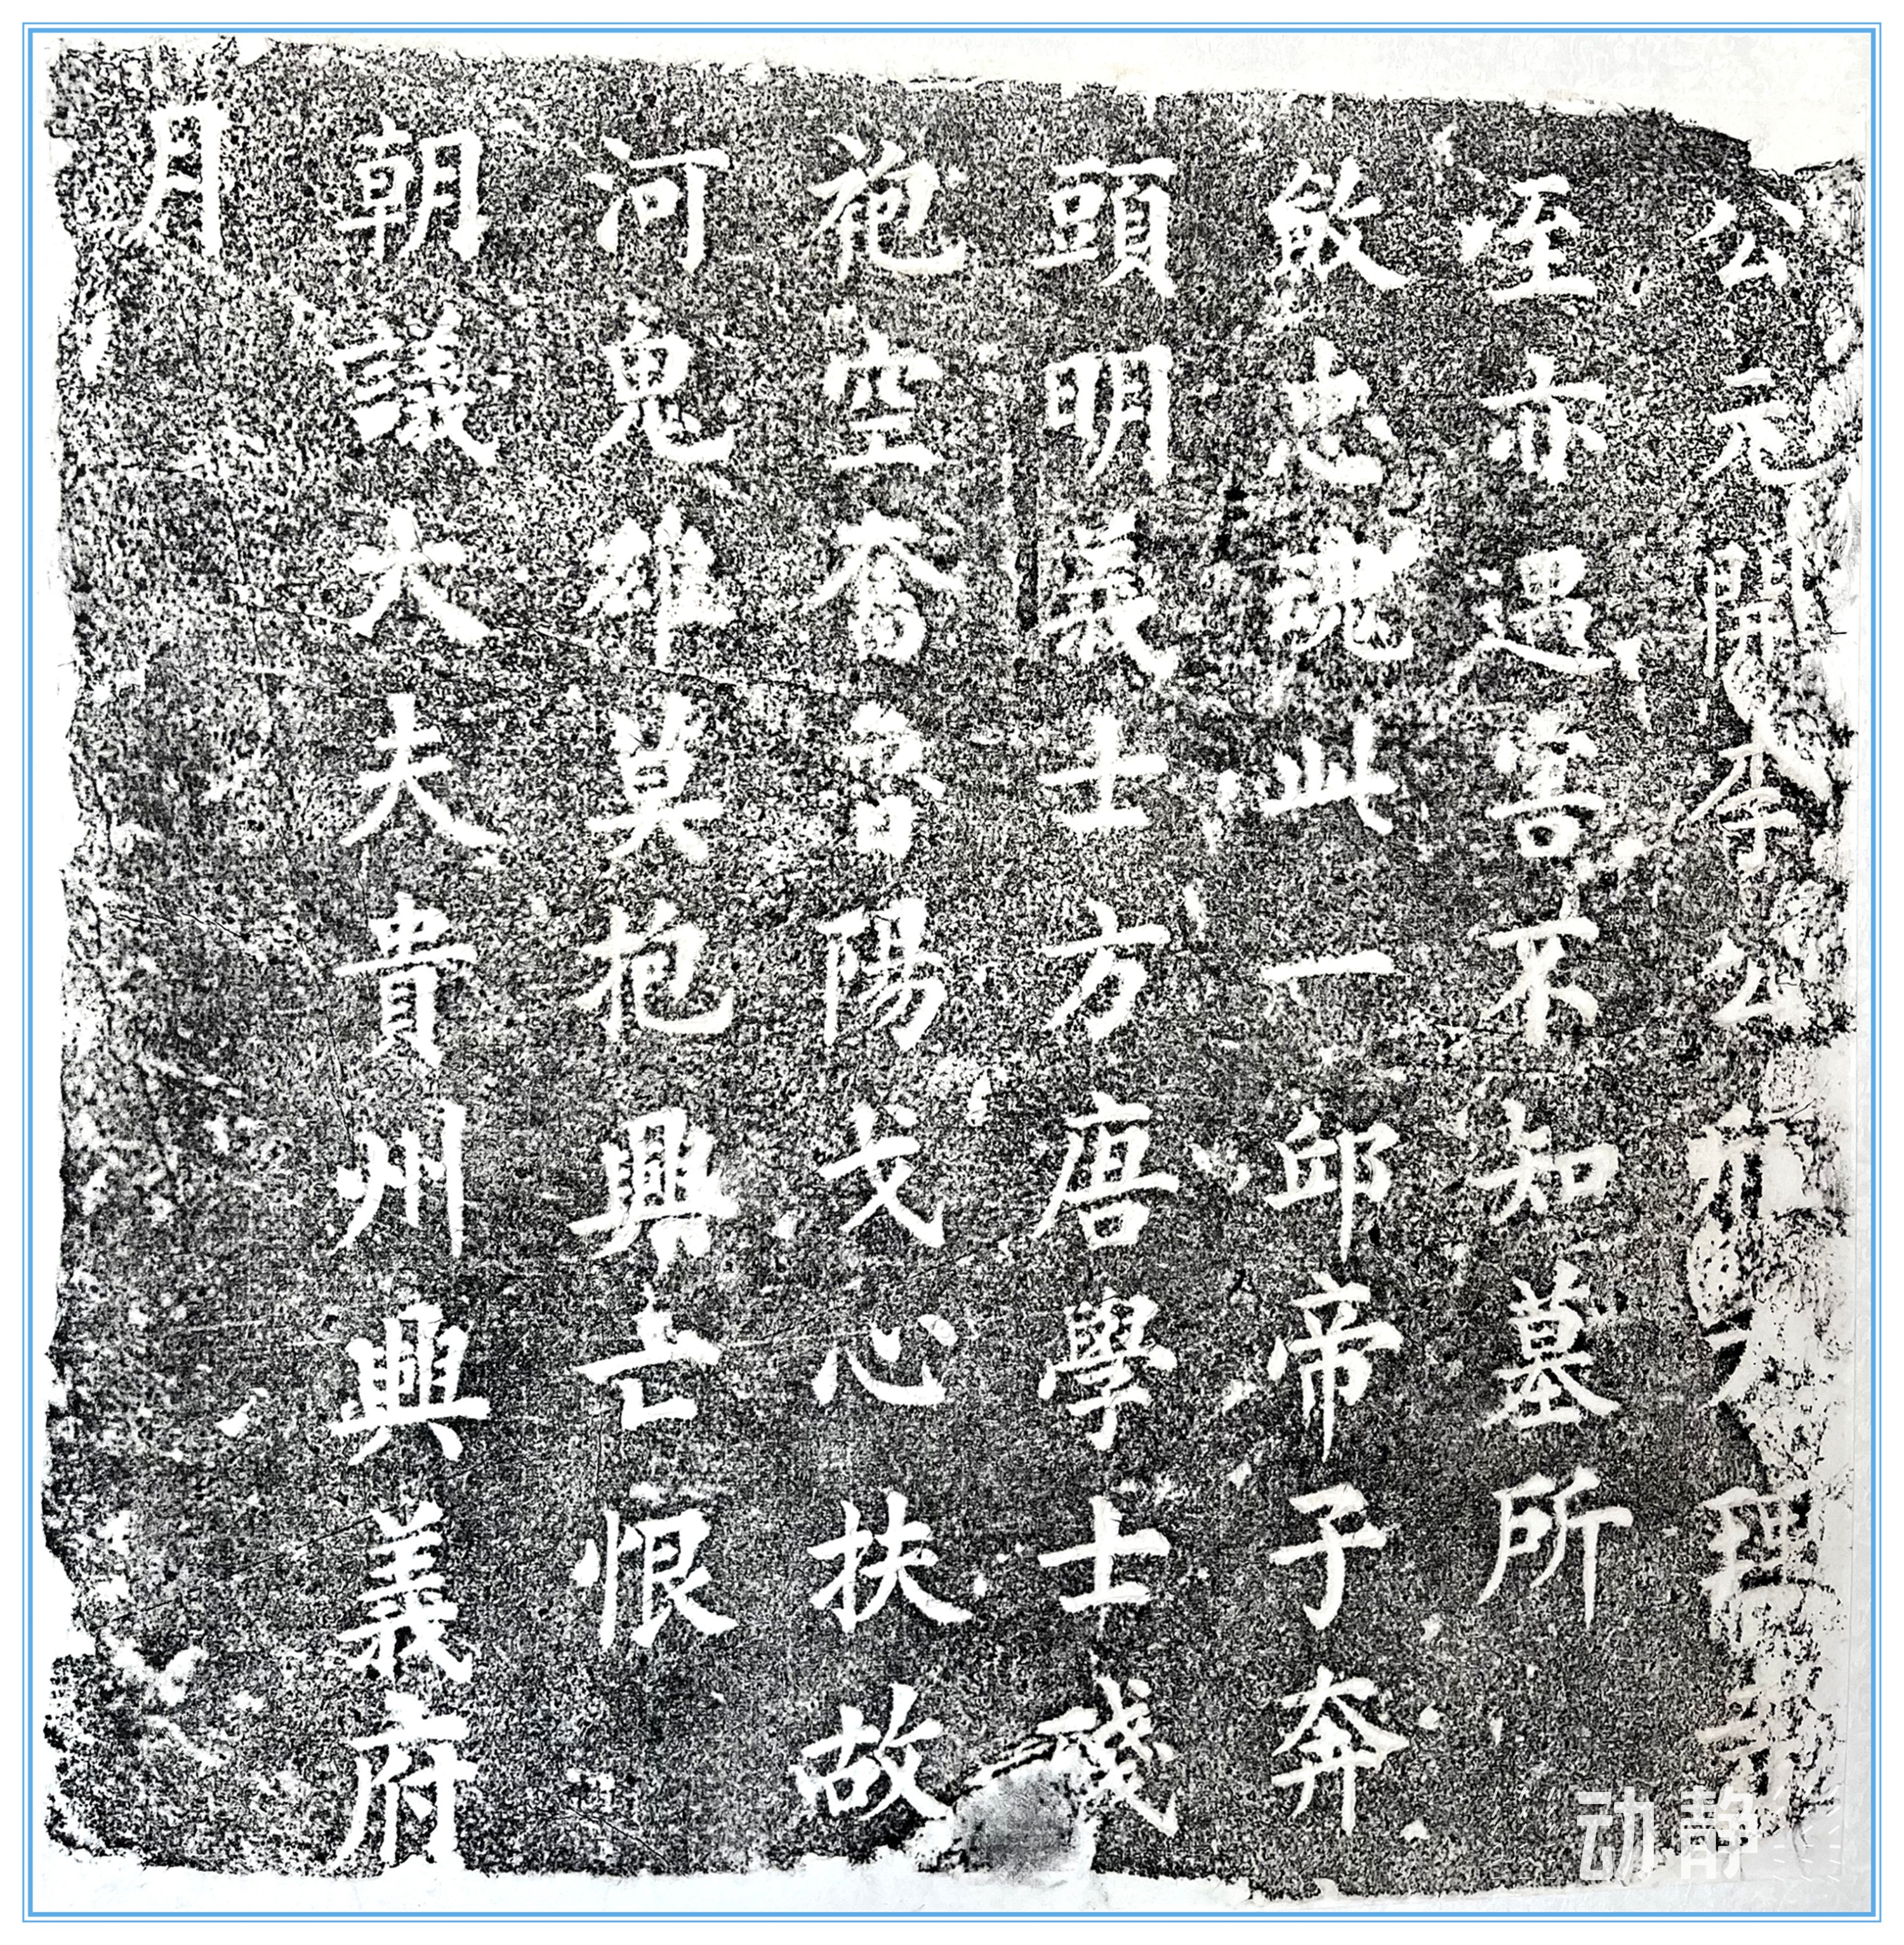 公元開李公元理
咥亦遇害不知墓所
斂忠魂此一邱帝子奔
頭明義士方唐學士殘
袍空奮魯陽戈心扶故
河鬼雄莫抱興亡恨
朝議大夫貴州興義府
月
动静